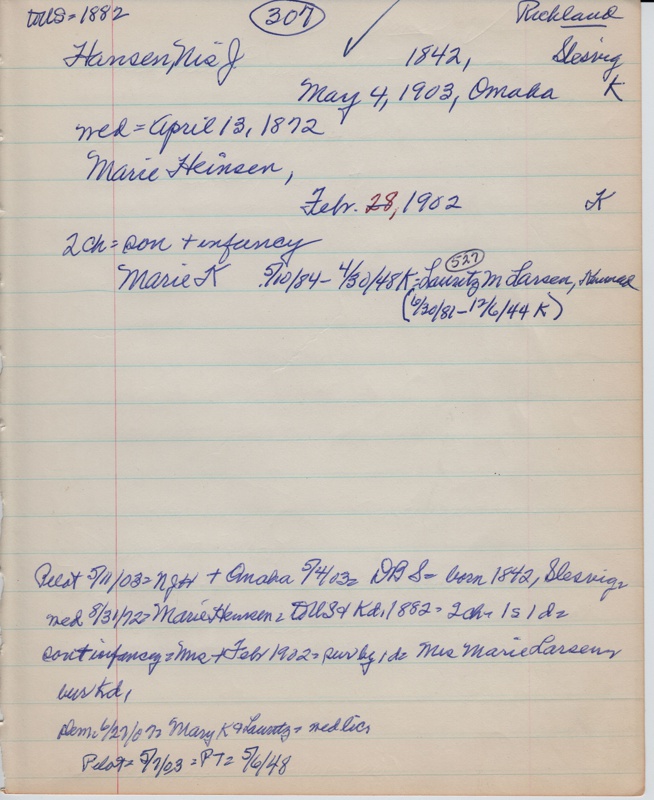 to US = 1882 307 Richland
Hansen, Nis J 1842, Slesvig
May 4, 1903, Omaha K
wed = April 13, 1872
Marie Heinsen,
Febr. 28, 1902 K
2 ch = son + infancy
527
Marie K 5/10/84 - 4/30/48 K = Lauritz M Larsen,
(6/30/81 - 12/6/44 K)
Pilot 5/11/03 = NJH + Omaha 5/4/03 = DBS = born 1842, Slesvig =
wed 8/31/72 = Marie Hensen = to US + Kd, 1882 = 2 ch = 1 s 1 d =
son + infancy = Mrs + Febr 1902 = sur by 1 d = Mrs Marie Larsen =
bur Kd,
Dem. 6/27/07 = Mary K + Lauritz = wed lics
Pilot = 5/7/03 = PT = 5/6/48